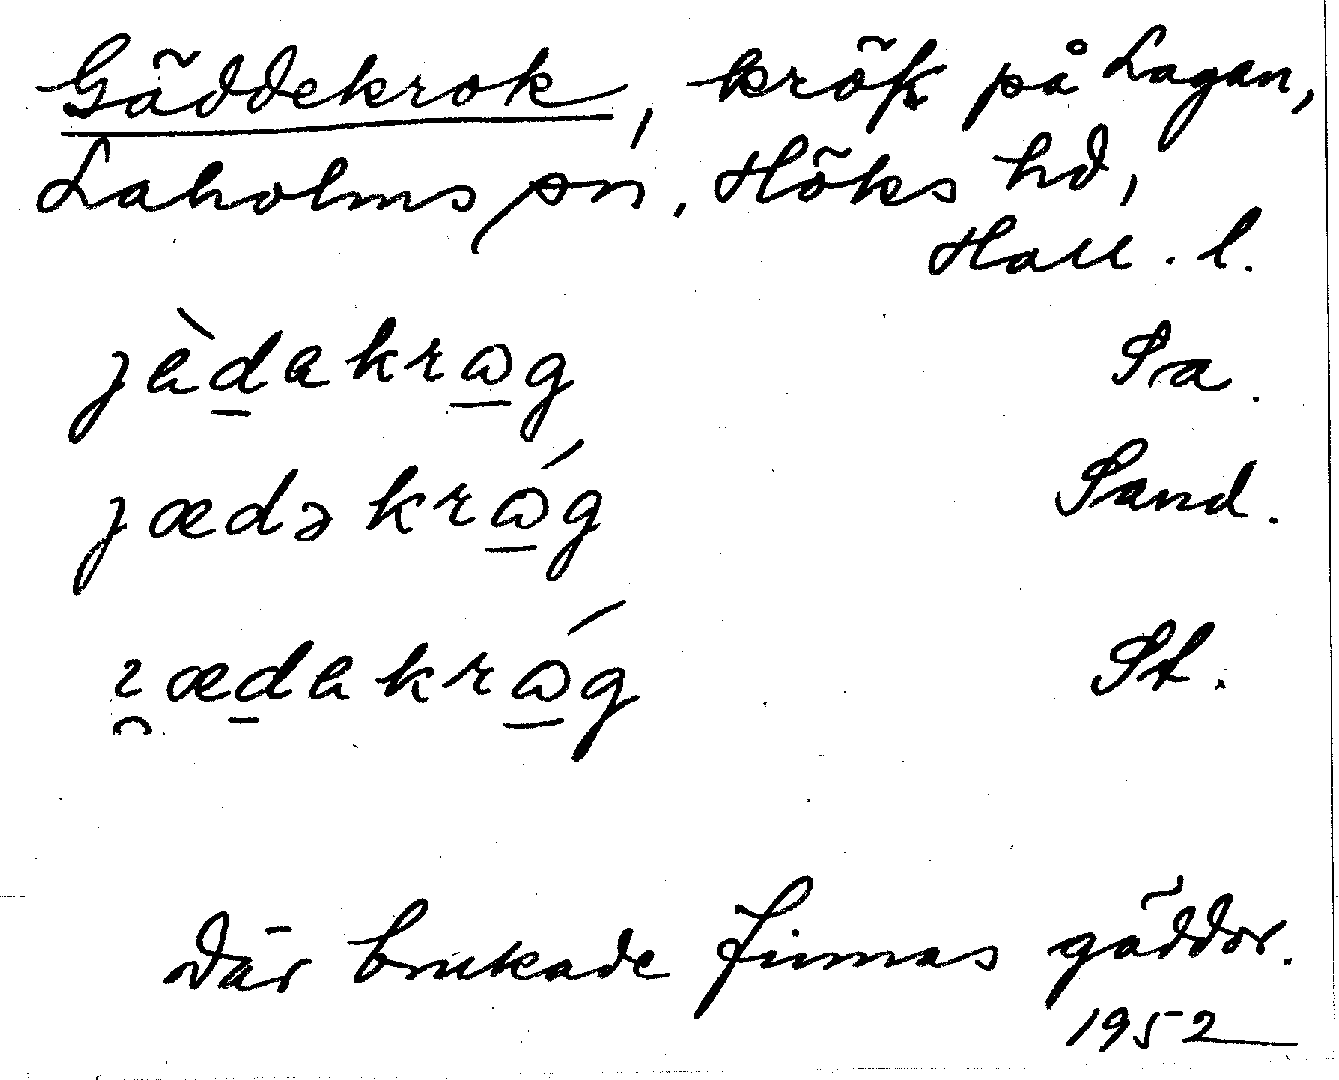 Gäddekrok, krök på Lagan,
Laholms sn, Höks hd,
Hall. l.
jàdakrɷg Sa.
jædəkrɷ́g Sand.
ɿædakrɷ́g St.
Där brukade finnas gäddor.
1952